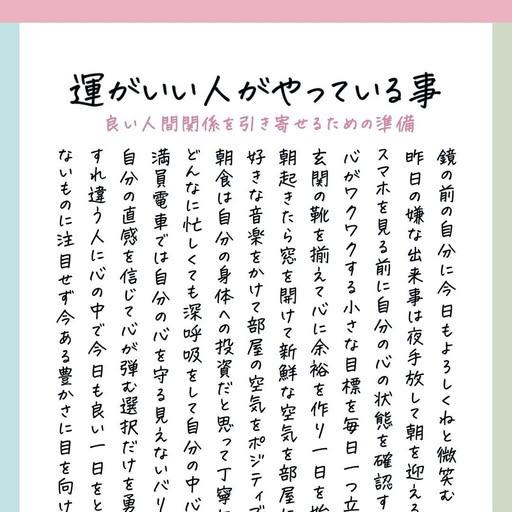 運がいい人がやっている事
良い人間関係を引き寄せるための準備
鏡の前の自分に今日もよろしくねと微笑む
昨日の嫌な出来事は夜手放して朝を迎える
スマホを見る前に自分の心の状態を確認す
心がワクワクする小さな目標を毎日一つ立
玄関の靴を揃えて心に余裕を作り一日を始
朝起きたら窓を開けて新鮮な空気を部屋に
好きな音楽をかけて部屋の空気をポジティブ
朝食は自分の身体への投資だと思って丁寧に
どんなに忙しくても深呼吸をして自分の中心
満員電車では自分の心を守る見えないバリ
自分の直感を信じて心が弾む選択だけを勇
すれ違う人に心の中で今日も良い一日をと
ないものに注目せず今ある豊かさに目を向け